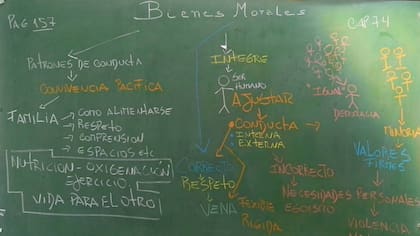 Bienes Morales
PAG 157
CAP 74
PATRONES DE CONDUCTA
CONVIVENCIA PACÍFICA
FAMILIA
COMO ALIMENTARSE
RESPETO
COMPRENSION
ESPACIOS etc
NUTRICION - OXIGENACIÓN
EJERCICIO
VIDA PARA EL OTRO
INTEGRE
SER
HUMANO
AJUSTAR
CONDUCTA
INTERNA
EXTERNA
CORRECTO
RESPETO
VENA
FLEXIBLE
RIGIDA
INCORRECTO
NECESIDADES PERSONALES
EGOISMO
VIOLENCIA
IGUAL
DEMOCRACIA
VALORES
FIRMES